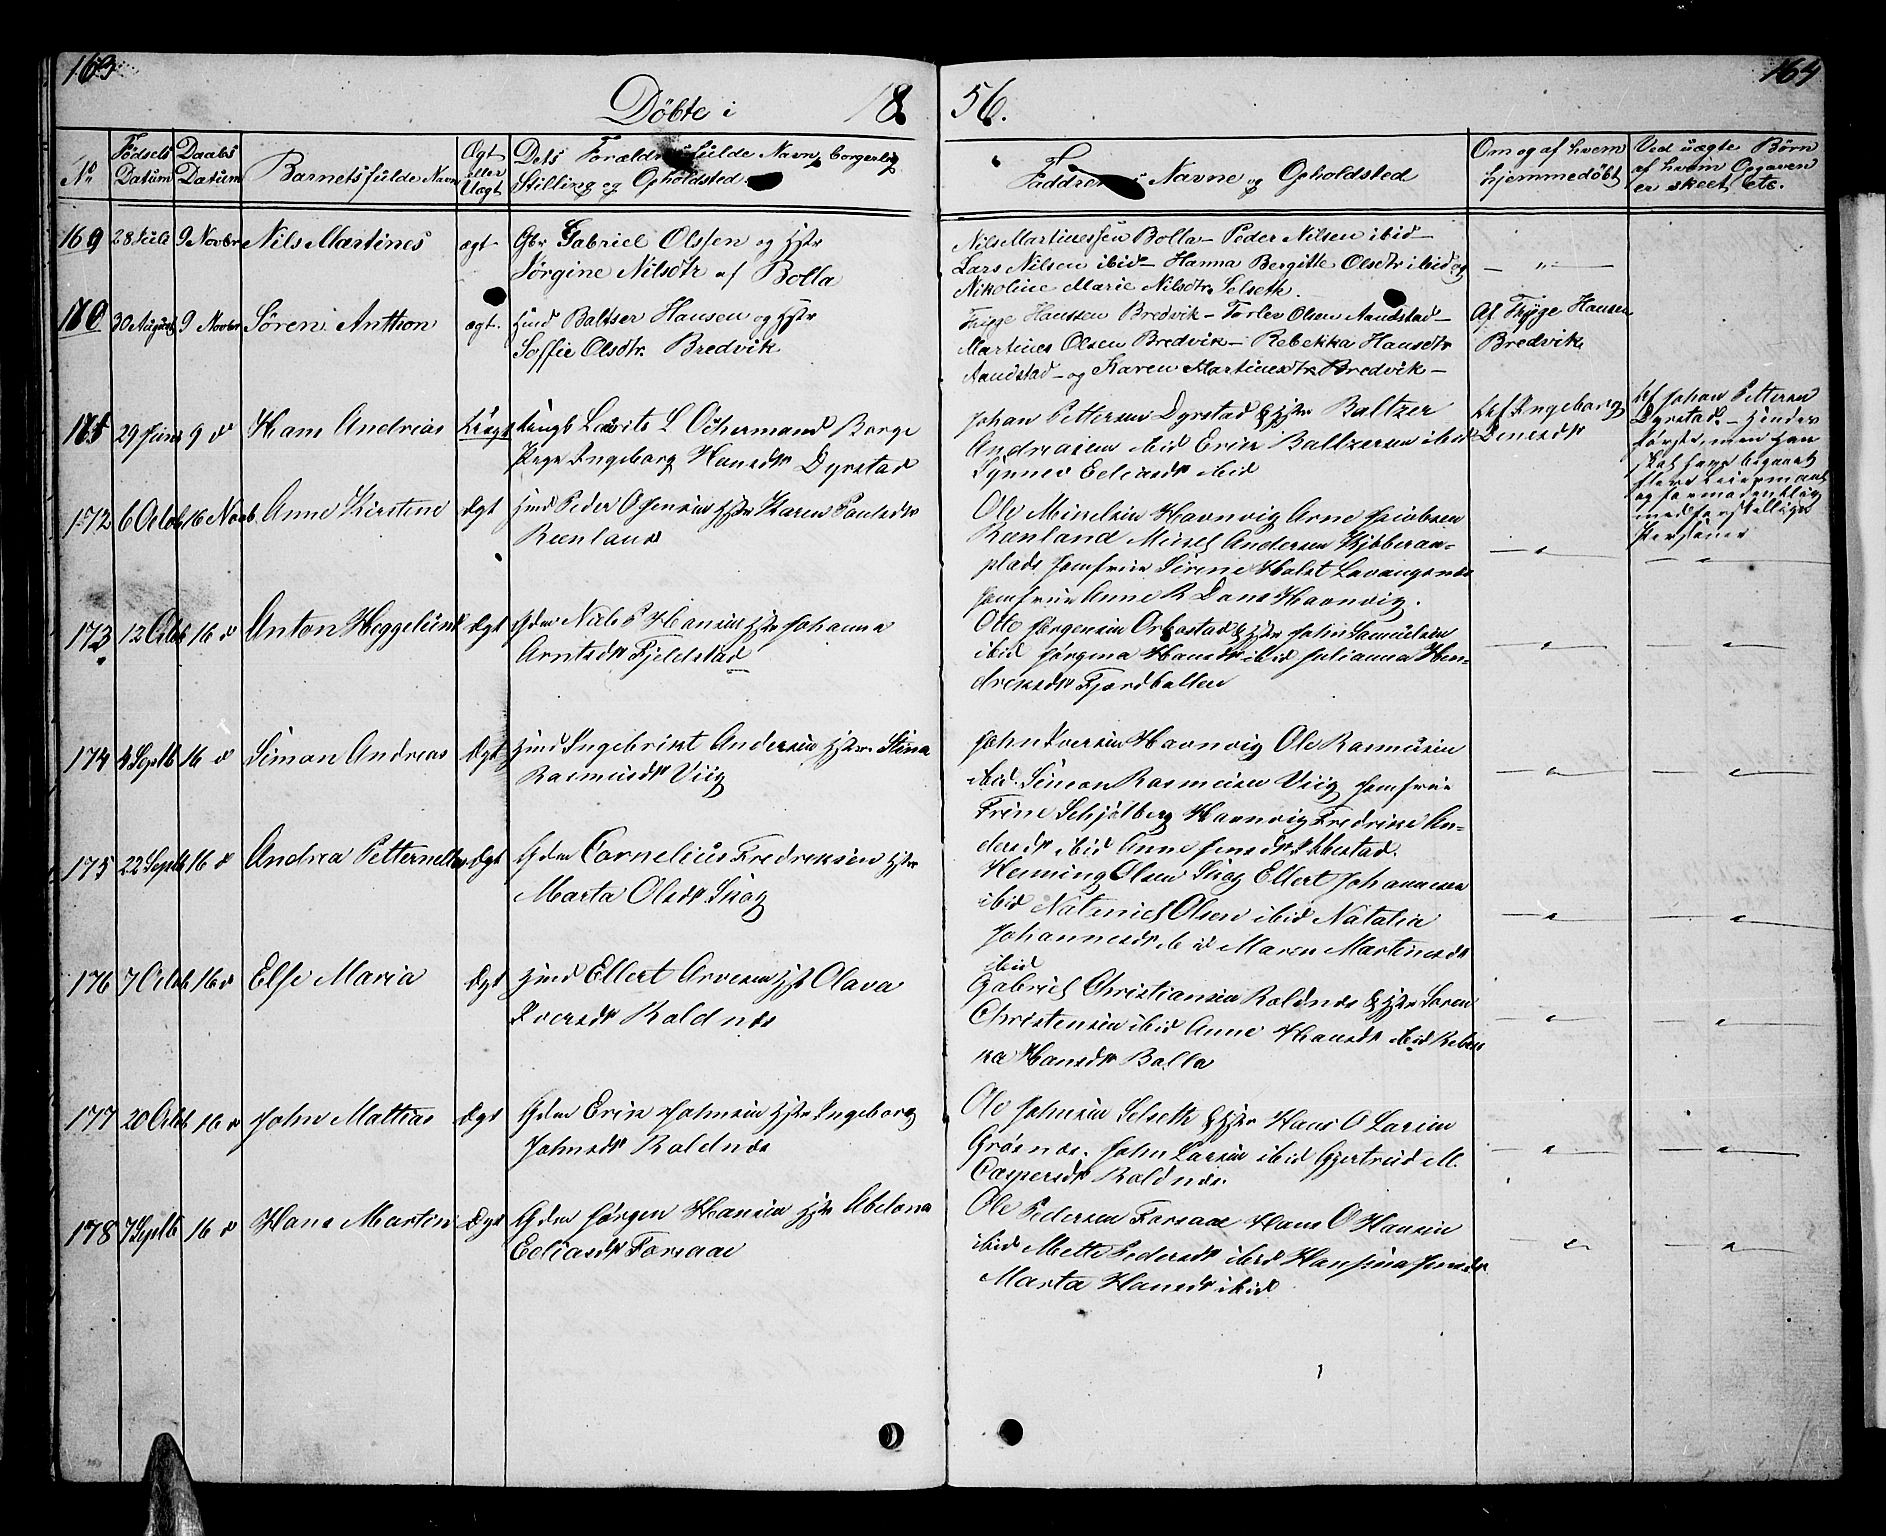 163
164
Döbte i 18
56.
No
Fødsels Datum
Daabs Datum
Barnets fulde Navn
Ægt eller Uægt
Dets Forældres fulde Navn, borgerlig
Stilling og Opholdsted
Faddrenes Navne og Opholdsted
Om og af hvem
hjemmedøbt
Ved uægte Børn
af hvem Opgaven
er skeet, etc.
169 28 Juli 9 Novbr Nils Martines ægt- Gbr Gabriel Olssen og Hstr
Jörgine Nilsdtr af Bolla
Nils Martinessen Bolla - Peder Nilsen ibid -
Lars Nilsen ibid - Hanna Bergitte Olsdtr ibid og
Nikoline Marie Nilsdtr Selseth.
— " —
170 30 August 9 Novbr Sören Anthon ægt. Hmd Baltser Hansen og Hstr
Soffie Olsdtr. Bredvik
Trige Hanssen Bredvik - Torlev Olsen Aandstad -
Martines Olsen Bredvik - Rebekka Hansdtr
Aandstad - og Karen Martinesdtr Bredvik -
Af Thyge Hansen
Bredvik
175 29 Juni 9 d Hans Andreas Uægt Ungk Lavrits L Ockermand Borge
Pige Ingeborg Hansdtr Dyrstad
Johan Pettersen Dyrstad & Hstr Baltzer
Andreasen ibid Erik Baltzersen ibid
Synnev Eeliasdtr ibid
Af Ingeborg
Denesdtr
Af Johan Pettersen
Dyrstad. - Hendes
første, men han
skal have begaaet
flere Leiermaal
og formodentlig
med forskjellige
Personer
172 6 Octob 16 Novb. Anne Kirstine Ægt Hmd Peder O Jensen Hstr Karen Paulsdtr
Rœnland
Ole Mikelsen Havnvig Arne Jacobsen
Rœnland Mikel Andersen Kjöberan-
plads Jomfrue Sirene Halst Lavangsnæs
Jomfrue Anne R Dons Havnvig.
173 12 Octob 16 d Anton Heggelund Ægt Gdm Niels P Hansen Hstr Johanna
Arntsdtr Fjeldstad
Otto Jørgensen Orbostad & Hstr John Samuelsen
ibid Jørgina Hansdtr ibid Julianna Hen-
driksdtr Fjordbotten
174 4 Septb 16 d Simon Andreas Ægt Hmd Ingebrikt Andersen Hstr Stina
Rasmusdtr Viig
John Iversen Havnvig Ole Rasmusen
ibid. Simon Rasmusen Viig Jomfrue
Trine Schjølberg Havnvig Fredrikke An-
dersdtr ibid Anne Jensdtr Ibbestad.
175 22 Septb 16 d Andrea Petternelle Ægt Gdm Cornelius Fredreksen Hstr
Marta Olsdtr Skog
Henning Olsen Skog Ellert Johannesen
ibid Natanich Olsen ibid Natalia
Johannesdtr ibid Maren Martinesdtr
ibid
176 7 Octob 16 d Else Maria Ægt Hmd Ellert Arnesen Hst Olava
Iversdtr Roldnæs
Gabriel Christiansen Roldnæs & Hstr Søren
Christensen ibid Anne Hansdtr ibid Rebek
ka Hansdtr Bolla
177 20 Octob 16 d John Mattias Ægt Gdm Erik Johnsen Hstr Ingeborg
Johnsdtr Roldnæs
Ole Johnsen Selseth & Hstr Hans O Larsen
Grösnæs. John Larsen ibid Gjertrud M.
Caspersdtr Roldnæs
178 7 Septb 16 d Hans Martin Ægt Gdm Jørgen Hansen Hstr Abelona
Eeliasdtr Forsaae
Ole Pedersen Forsaae Hans O Hansen
ibid Mette Pedersdtr ibid Hansina Jensdtr
Marta Hansdtr ibid